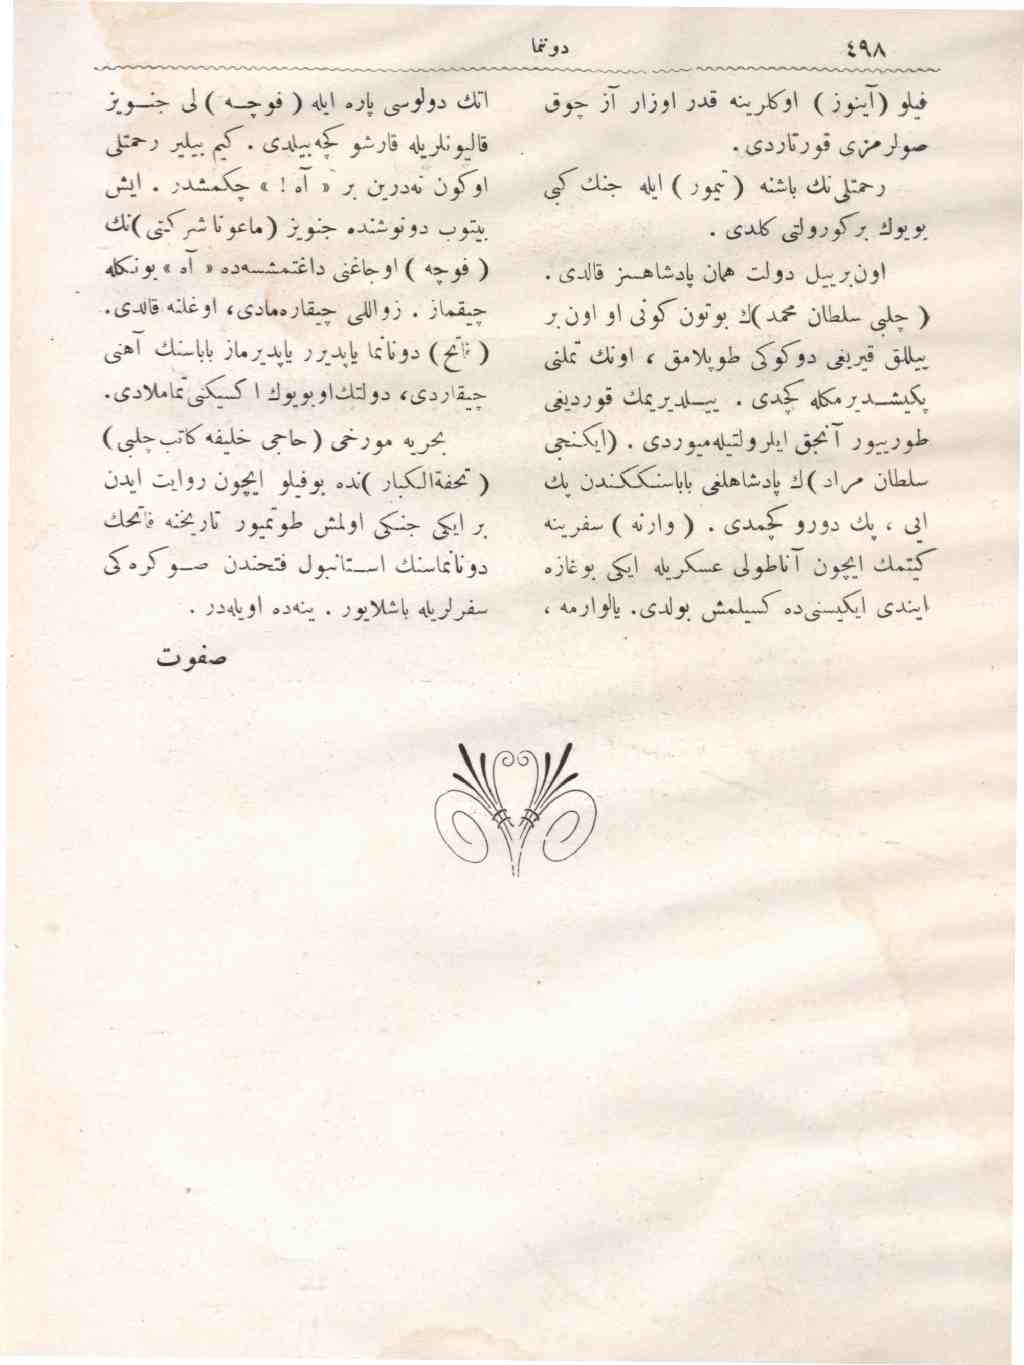 ٤٩٨
دوننما
فيلو (آينوز) اوكلرينه قدر اوزار آز چوق
صولرمزى قورتاردى.
رحمتلى‌نك باشنه (تيمور) ايله جنك كبى
بويوك بر كورولتى كلدى.
اون بر ييل دولت همان پادشاهسز قالدى.
(چلبى سلطان محمد)ك بوتون كونى او اون بر
ييللق قيريغى دوكوكى طوپلامق ، اونك تملنى
پكيشديرمكله كچدى . ييلديريمك قورديغى
طورييور آنجق ايلرولتيله‌ميوردى . (ايكنجى
سلطان مراد)ك پادشاهلغى باباسنككندن پك
ايى ، پك دورو كچمدى . (وارنه) سفرينه
كيتمك ايچون آناطولى عسكريله ايكى بوغازه
ايندى ايكيسنى‌ده كسيلمش بولدى. يالوارمه ،
اتك دولوسى پاره ايله (فوچه) لى جنويز
قاليونلريله قارشو كچه‌بيلدى . كيم بيلير رحمتلى
اوكون نه‌درين بر « آه ! » چكمشدر . ايش
بيتوب دونوشنده جنويز (ماعونا شركتى)نك
(فوچه) اوجاغنى داغتمشسه‌ده « آه » بونكله
چيقماز . زواللى چيقاره‌مادى، اوغلنه قالدى.
(فاتح) دونانما ياپديرر ياپديرماز باباسنك آهنى
چيقاردى، دولتك او بويوك اكسيكنى تماملادى.
بحريه مورخى (حاجى خليفه كاتب چلبى)
(تحفةالكبار)نده بوفيلو ايچون روايت ايدن
بر ايكى جنكى اولمش طوتميور تاريخنه فاتحك
دونانماسنك استانبول فتحندن صوكره‌كى
سفرلريله باشلايور . ينه‌ده اويله‌در .
صفوت